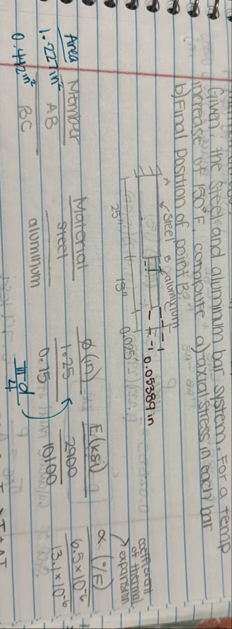 Given, the steel and aluminum bar system. For a temp
increase of 130°F compute a) axial stress in each bar
b) Final position of point B
A steel B aluminum
25" 15"
0.025"
0.05389 in
coefficient
of thermal
expansion
Area Member Material ϕ(in) E(ksi) α (°/F)
1.227in² AB steel 1.25 2900 6.5×10⁻⁶
0.442in² BC aluminum 0.75 10100 13.1×10⁻⁶
πd
4